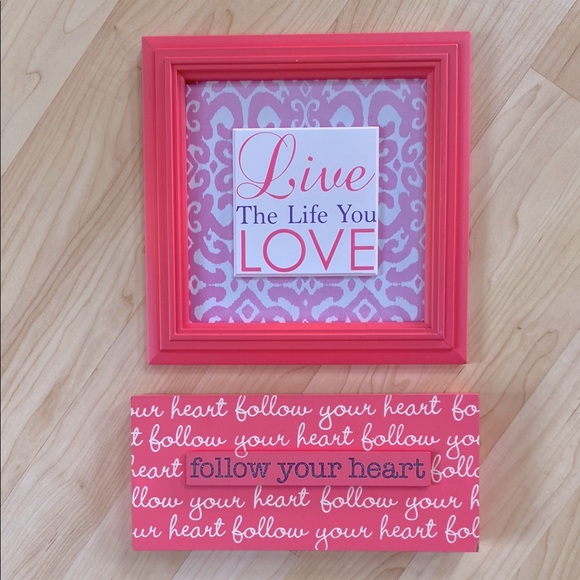 Live
The Life You
LOVE
our heart follow your heart fo
t follow your heart follow you
heart follow your heart follo
llow your heart follow your h
ur heart follow your heart fol